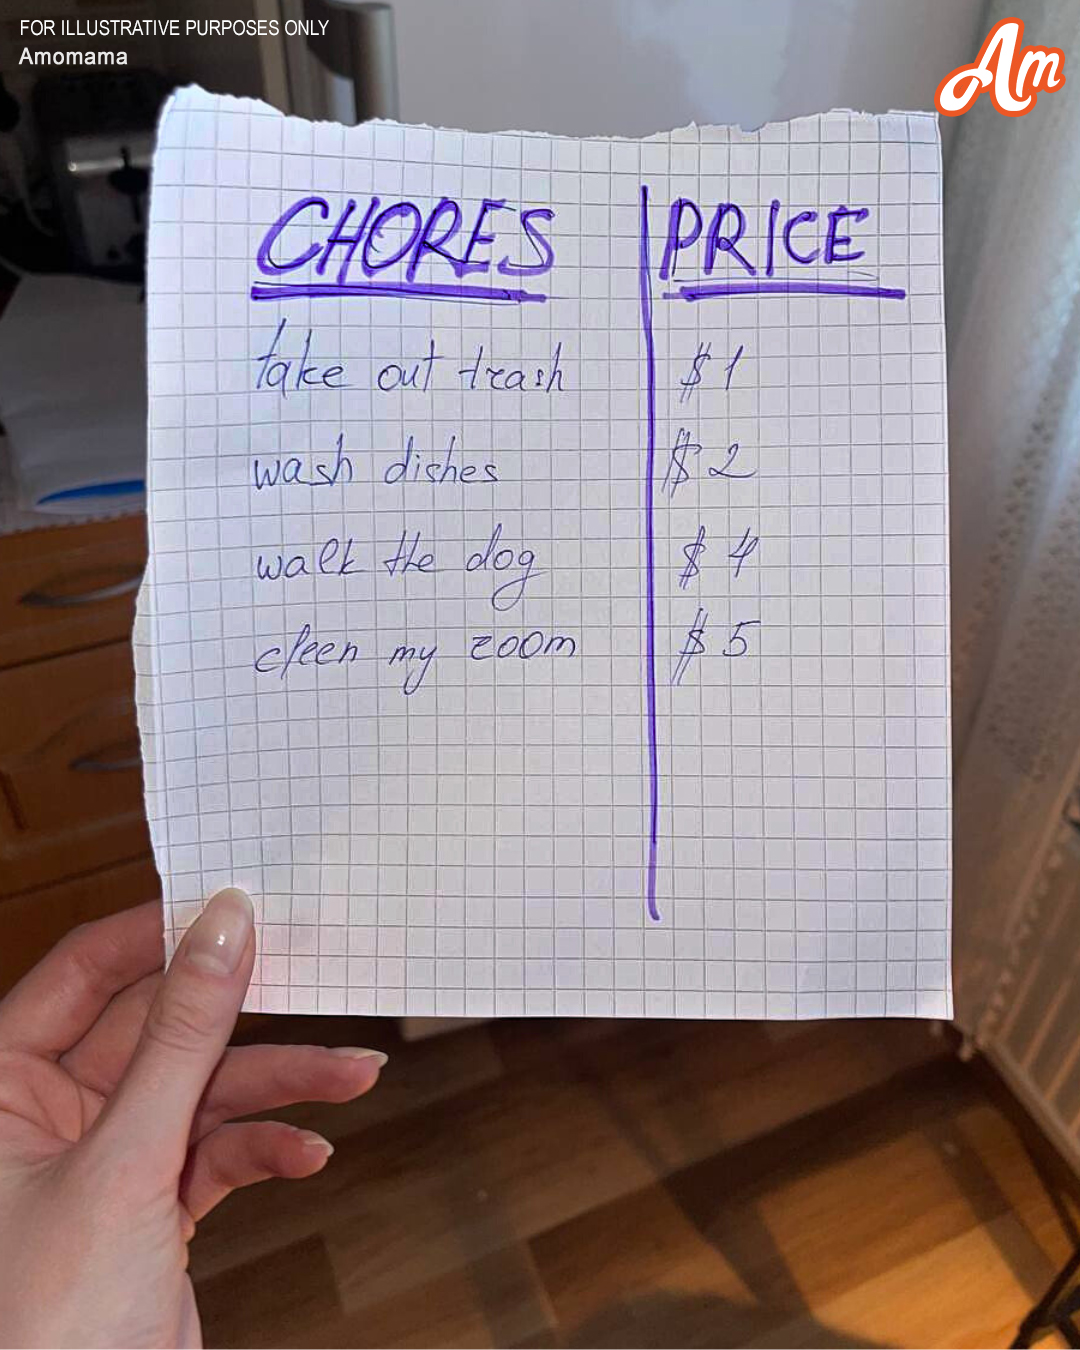 FOR ILLUSTRATIVE PURPOSES ONLY
Amomama
Am
CHORES PRICE
take out trash $1
wash dishes $2
walk the dog $4
cleen my room $5